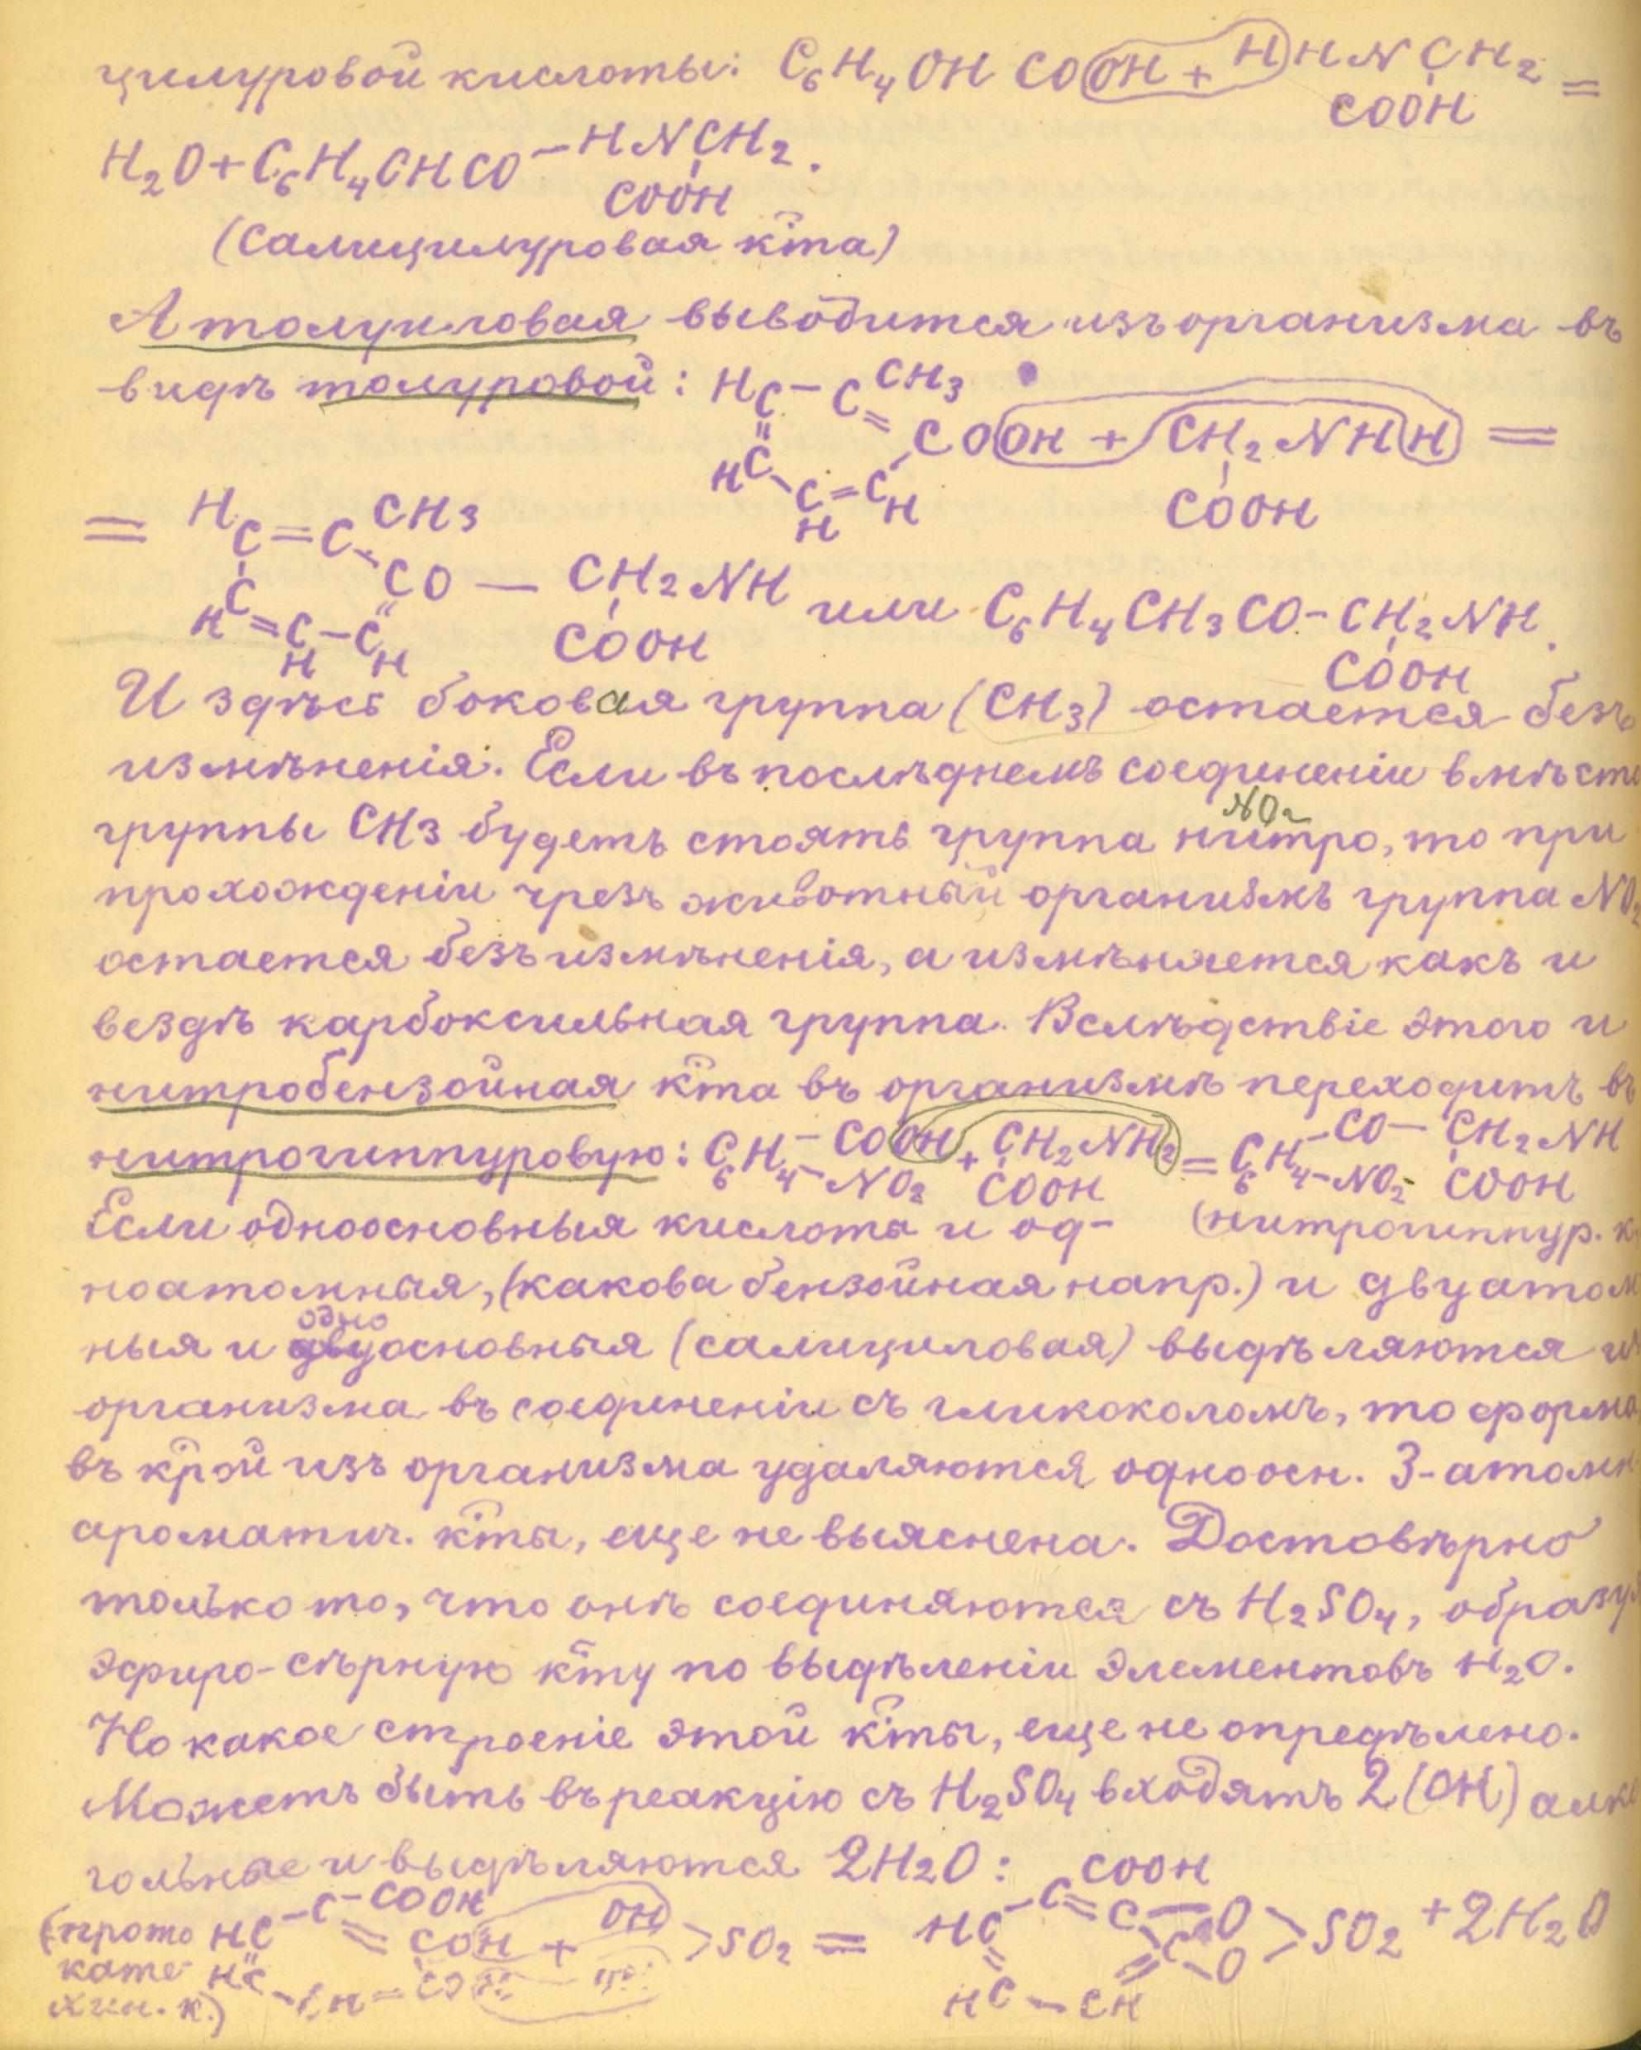 цилуровой кислоты: C6H4OHCOOH + HHNCH2 =
COOH
H2O + C6H4OHCO – HNCH2.
COOH
(Салицилуровая к͡та)
А толуиловая выводится изъ организма въ
видѣ толуровой: HC – C CH3
COOH + CH2NHH =
HC C = CH
H COOH
= HC = C CH3
CO — CH2NH или C6H4CH3CO – CH2NH.
HC = C – CH COOH COOH
H
И здѣсь боковая группа (CH3) остается безъ
измѣненія. Если въ послѣднемъ соединеніи вмѣсто
NO2
группы CH3 будетъ стоять группа нитро, то при
прохожденіи чрезъ животный организмъ группа NO2
остается безъ измѣненія, а измѣняется какъ и
вездѣ карбоксильная группа. Вслѣдствіе этого и
нитробензойная к͡та въ организмѣ переходитъ въ
нитрогиппуровую: C6H4 – COOH + CH2NH2 = C6H4 – CO – CH2NH
– NO2 COOH – NO2 COOH
Если одноосновныя кислота и од- (нитрогиппур. к
ноатомныя, (какова бензойная напр.) и двуатом
одно
ныя и двуосновныя (салициловая) выдѣляются и
организма въ соединеніи съ гликоколомъ, то форма
въ к͡рой изъ организма удаляются одноосн. 3-атомн
ароматич. к͡ты, еще не выяснена. Достовѣрно
только то, что онѣ соединяются съ H2SO4, образуя
эфиро-сѣрную к͡ту по выдѣленіи элементовъ H2O.
Но какое строеніе этой к͡ты, еще не опредѣлено.
Можетъ быть въ реакцію съ H2SO4 входятъ 2 (OH) алко
гольные и выдѣляются 2H2O:
(прото HC – C – COOH = COH + OH > SO2 = HC – C COOH = C – O > SO2 + 2H2O
кате HC – CH = COH C – O
хин. к.) HC – CH